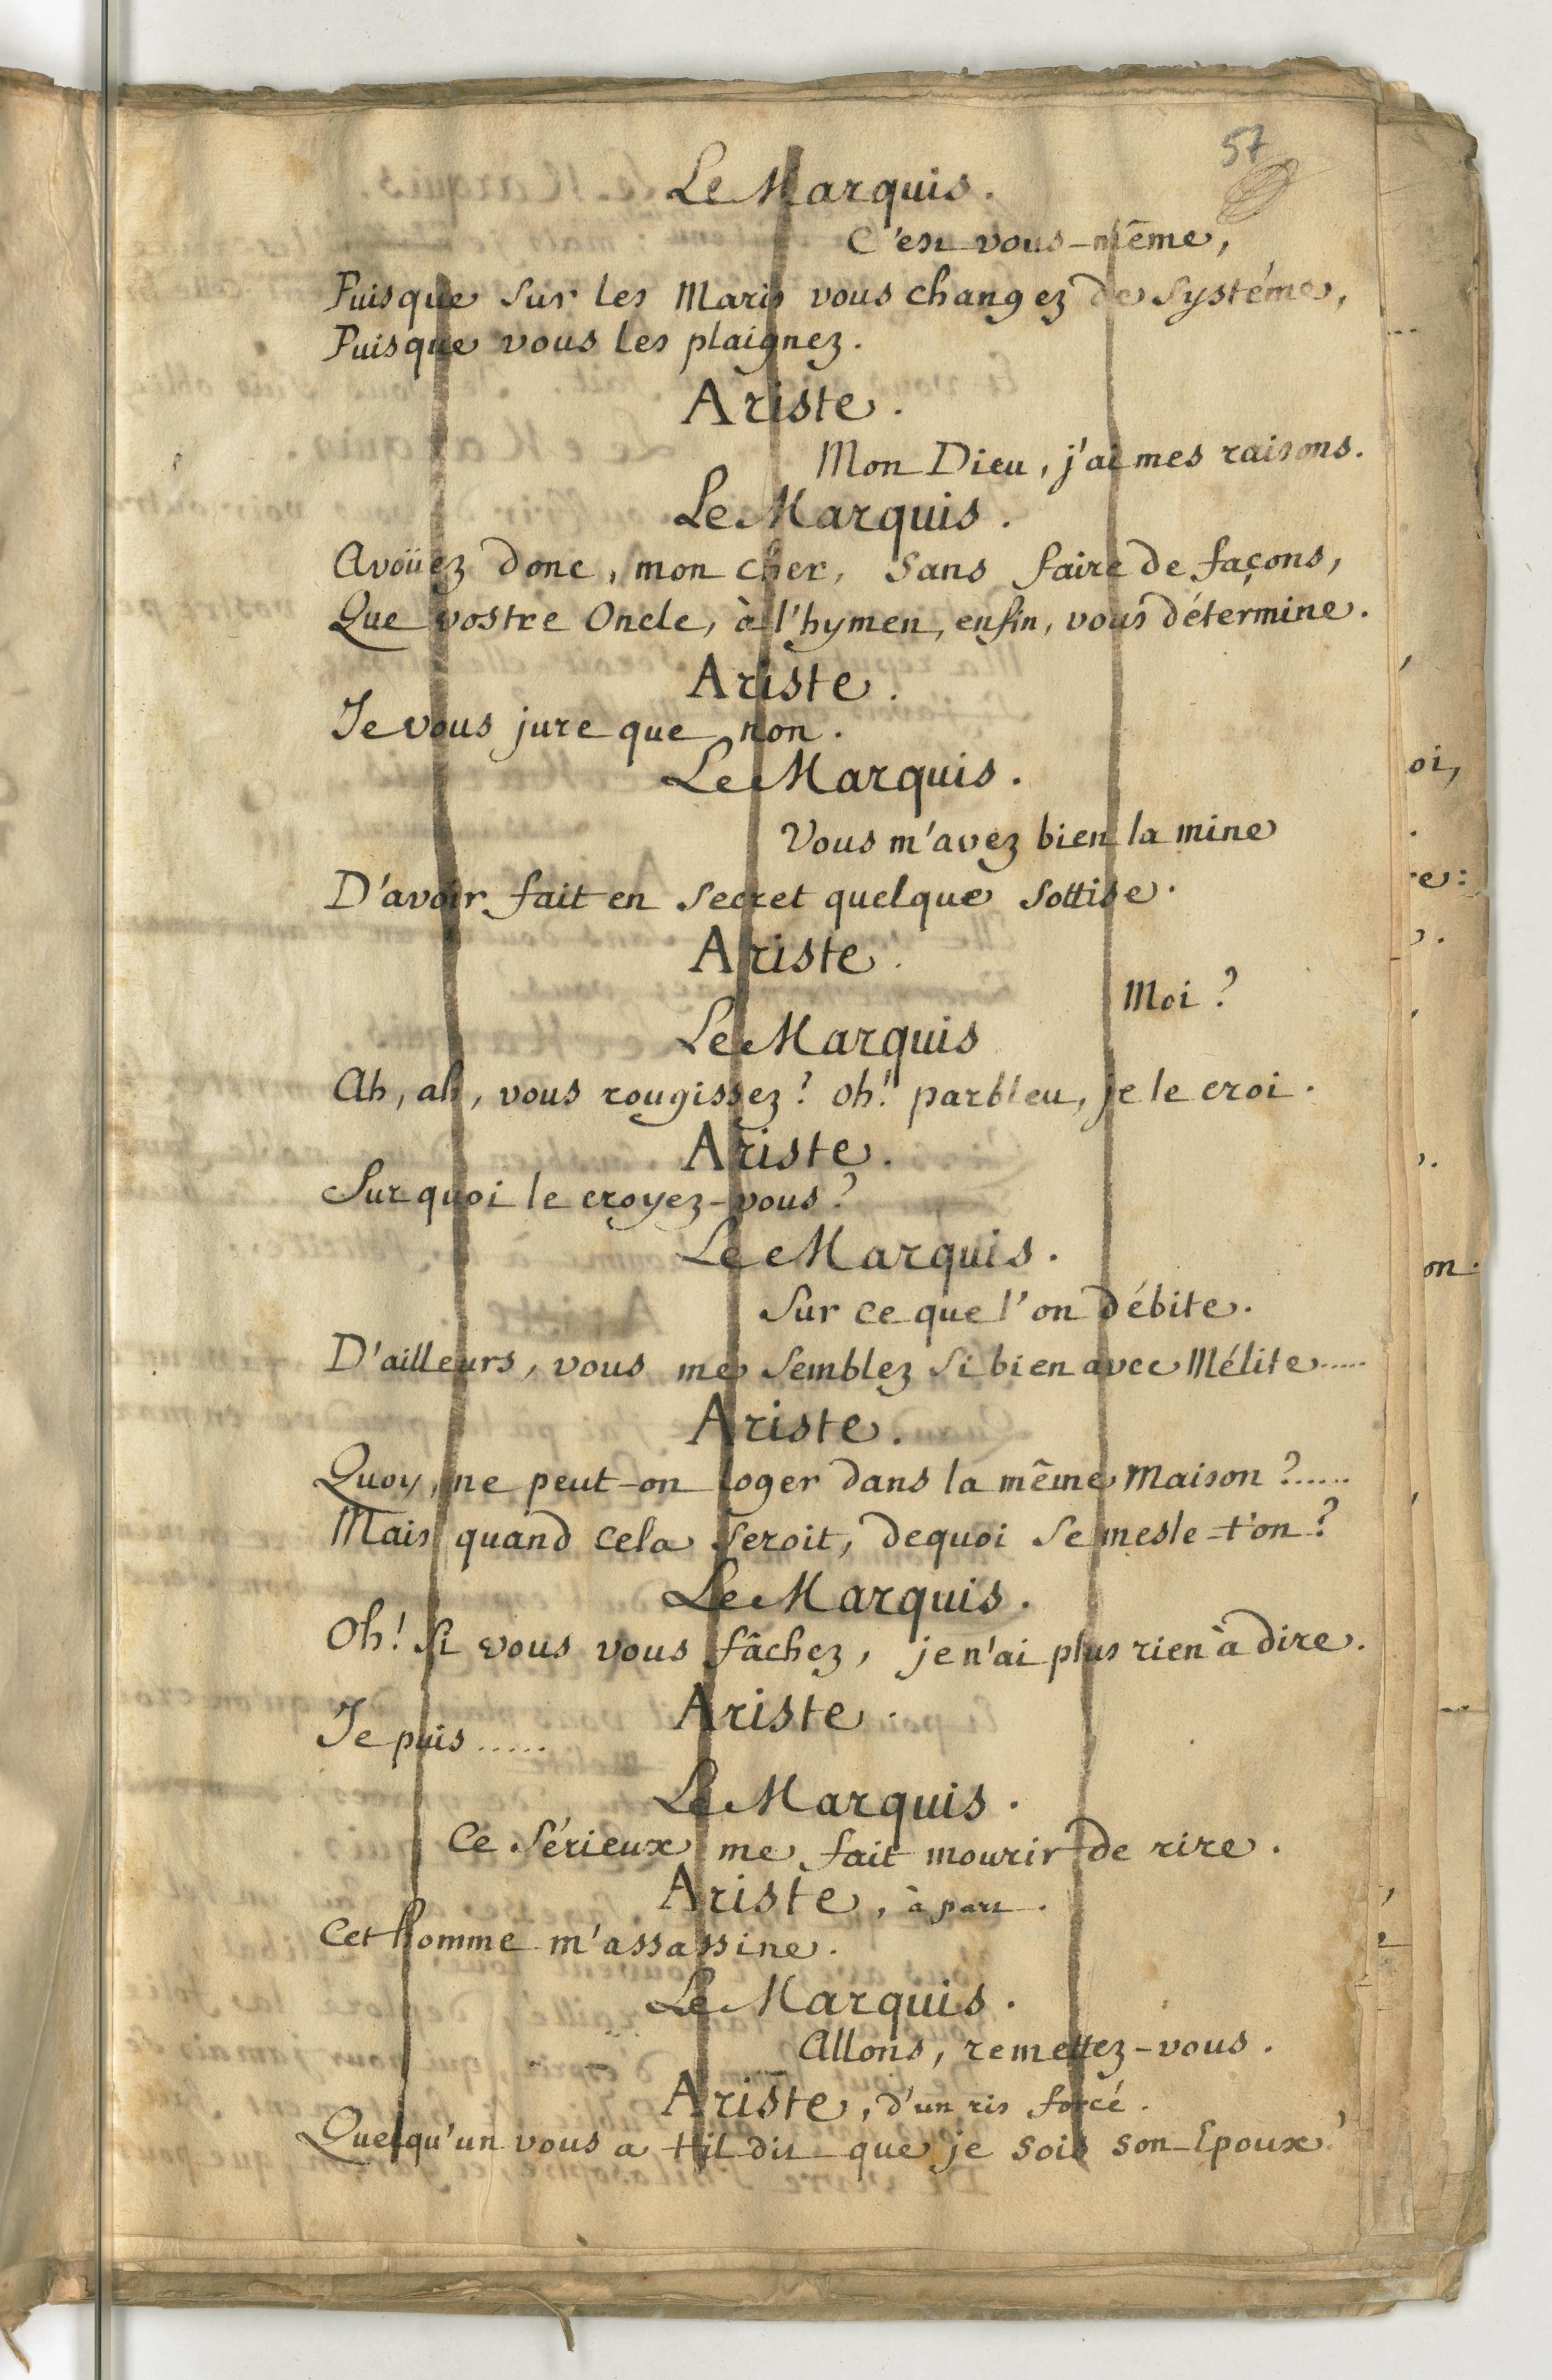 57
Le Marquis.
C'est vous-même,
Puisque sur les Maris vous changez de systéme,
Puisque vous les plaignez.
Ariste.
Mon Dieu, j'ai mes raisons.
Le Marquis.
Avoüez donc, mon cher, sans faire de façons,
Que vostre Oncle, à l'hymen, enfin, vous détermine.
Ariste.
Je vous jure que non.
Le Marquis.
Vous m'avez bien la mine
D'avoir fait en secret quelque sottise.
Ariste.
Moi?
Le Marquis
Ah, ah, vous rougissez? oh! parbleu, je le croi.
Ariste.
Sur quoi le croyez-vous?
Le Marquis.
Sur ce que l'on débite.
D'ailleurs, vous me semblez si bien avec Mélite.....
Ariste.
Quoy, ne peut-on loger dans la même Maison?.....
Mais quand cela seroit, dequoi se mesle-t'on?
Le Marquis.
Oh! si vous vous fâchez, je n'ai plus rien à dire.
Ariste.
Je puis.....
Le Marquis.
Ce sérieux me fait mourir de rire.
Ariste, à part.
Cet homme m'assassine.
Le Marquis.
Allons, remettez-vous.
Ariste, d'un ris forcé.
Quelqu'un vous a t-il dit que je sois son Epoux?
oi,
re:
on.